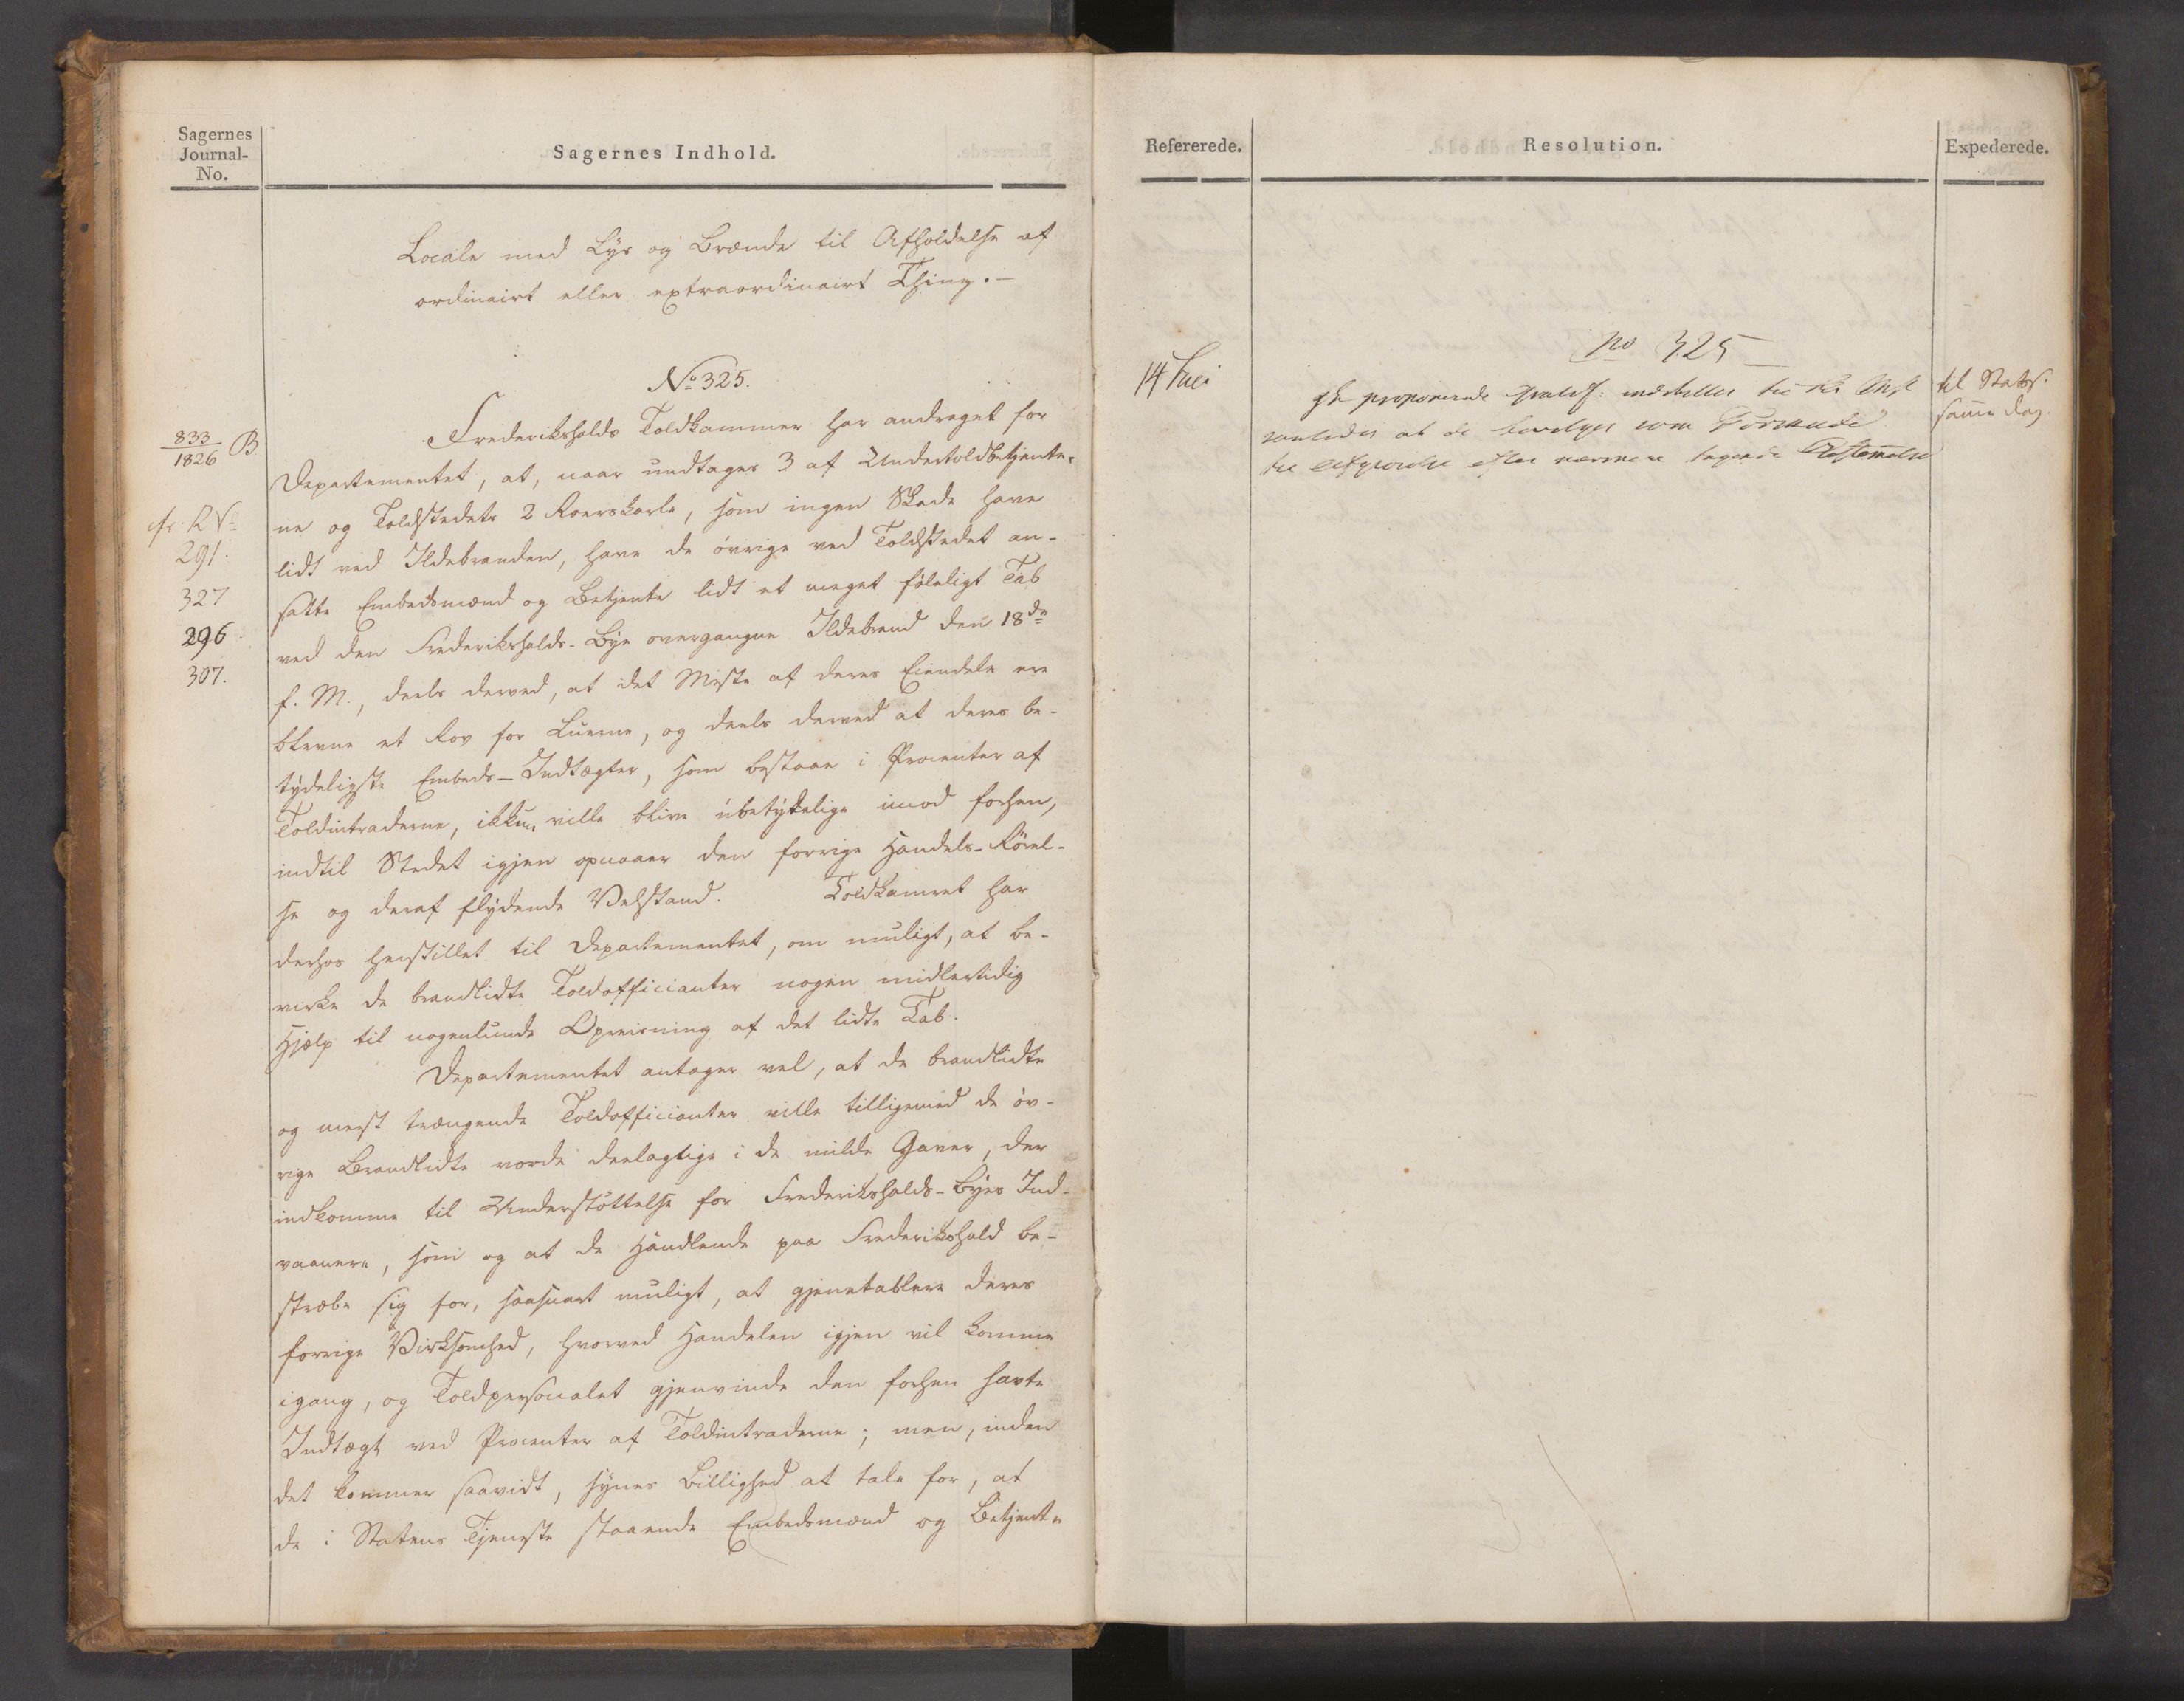 Sagernes
Journal-
No.
Sagernes Indhold.
Locale med Lys og Brænde til Afholdelse af
ordinairt eller extraordinairt Thing.-
No 325.
833
1826 B.
Frederikshalds Toldkammer har andraget for
Departementet, at, naar undtages 3 af Undertoldbetjente-
ne og Toldstedets 2 Roerskarle, som ingen Skade have
lidt ved Ildebranden, have de övrige ved Toldstedet an-
satte Embedsmænd og Betjente lidt et meget föleligt Tab
ved den Frederikshalds-Bye overgangne Ildebrand den 18de
f. M., deels derved, at det Meste af deres Eiendele ere
blevne et Rov for Luerne, og deels derved at deres be-
tydeligste Embeds-Indtægter, som bestaae i Procenter af
Toldintraderne, ikkun ville blive ubetydelige imod forhen,
indtil Stedet igjen opnaaer den forrige Handels-Rörel-
se og deraf flydende Velstand. Toldkamret har
derhos henstillet til Departementet, om muligt, at be-
virke de brandlidte Toldofficianter nogen midlertidig
Hjælp til nogenlunde Opreisning af det lidte Tab.
Departementet antager vel, at de brandlidte
og meest trængende Toldofficianter ville tilligemed de öv-
rige Brandlidte vorde deelagtige i de milde Gaver, der
indkomme til Understöttelse for Frederikshalds-Byes Ind-
vaanere, som og at de Handlende paa Frederikshald be-
stræbe sig for, saasnart muligt, at gjenetablere deres
forrige Virksomhed, hvorved Handelen igjen vil komme
igang, og Toldpersonalet gjenvinde den forhen havte
Indtægt ved Procenter af Toldintraderne; men, inden
det kommer saavidt, synes Billighed at tale for, at
de i Statens Tjeneste staaende Embedsmænd og Betjente
cfr. R No
291.
327
296
307.
Refererede.
Resolution.
Expederede.
14 Juli
No 325
indstilles
at de som Forskud
efter nærmere Bestemmelse
til Statss.
samme Dag.